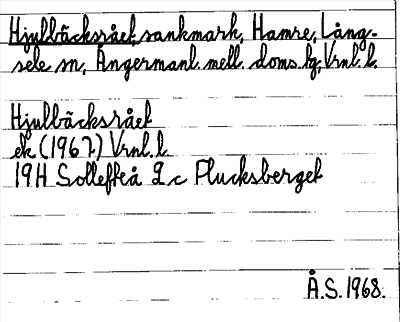 Hjulbäcksrået, sankmark, Hamre, Lång-
sele sn, Ångermanl. mell. doms. bg, Vrnl. l.
Hjulbäcksrået
ek (1967) Vrnl. l.
19H Sollefteå 2 c Flucksberget
Å.S. 1968.